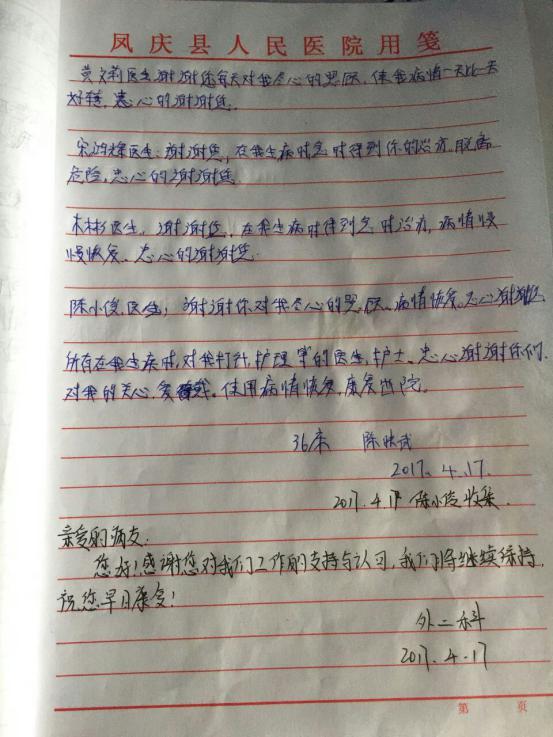 凤庆县人民医院用笺
医生谢谢您每天对我尽心的照顾，使我病情一天比一天
好转，忠心的谢谢您。
宋鸿辉医生：谢谢您，在我生病时急时得到你的治疗，脱离
危险，忠心的谢谢您
木彬医生，谢谢您，在我生病时得到急时治疗，病情慢
慢恢复、忠心的谢谢您
陈小俊医生，谢谢你对我尽心的照顾、病情恢复、忠心谢谢您
所有在我生病时，对我打针，护理等的医生，护士、忠心谢谢你们，
对我的关心，爱。使用病情恢复，康复出院。
36床 陈
2017.4.17.
2017.4.17 陈小俊收集.
亲爱的病友：
您好！感谢您对我们工作的支持与认可，我们将继续保持，
祝您早日康复！
外二科
2017.4.17
第 页